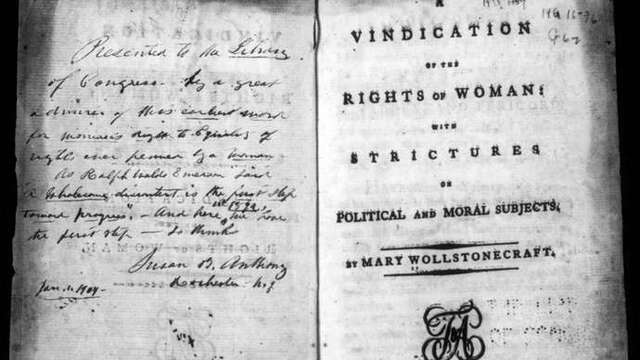 Presented to the Library
of Congress by a great
admirer of this earliest work
for woman's right to Equality of
rights ever penned by a woman
As Ralph Waldo Emerson said
"A wholesome discontent is the first step
toward progress" - And here in 1792, we have
the first step - so thinks
Susan B. Anthony
Jan. 1. 1904 Rochester N.Y.
A
VINDICATION
OF THE
RIGHTS OF WOMAN:
WITH
STRICTURES
ON
POLITICAL AND MORAL SUBJECTS.
BY MARY WOLLSTONECRAFT.